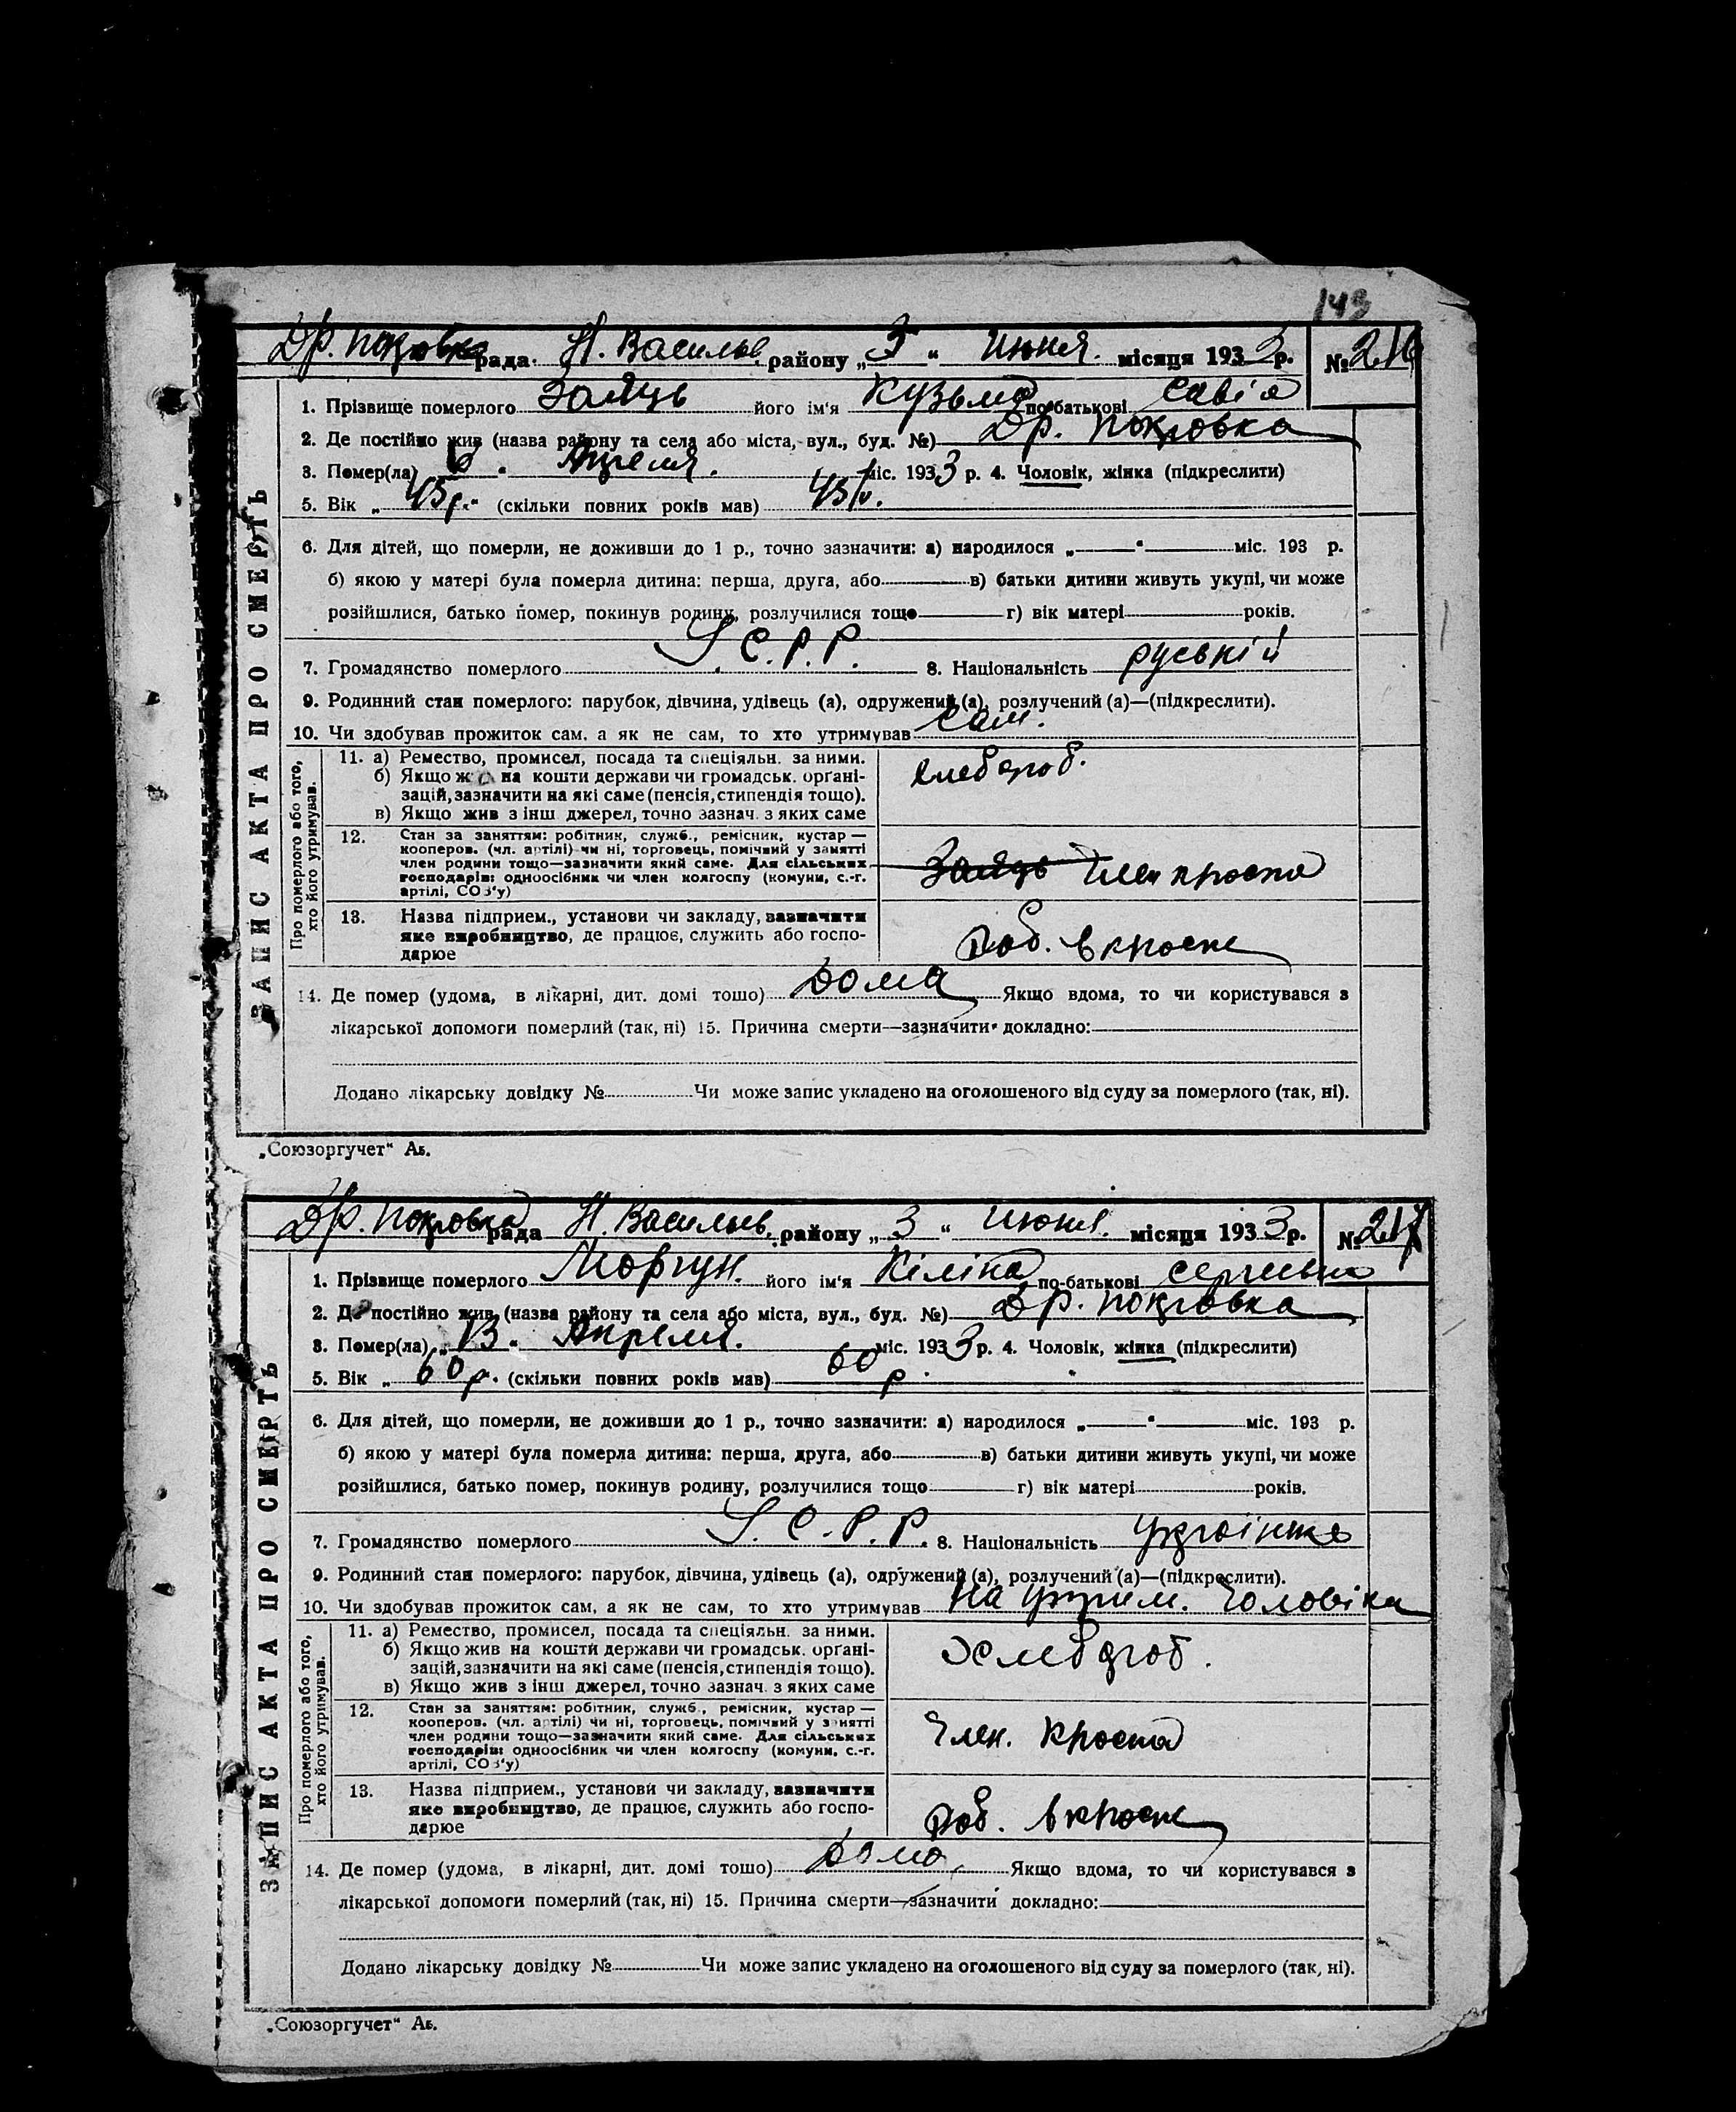 143
Др. Покровка рада Н. Васильев. району „3“ Июня. місяця 1933 р. № 216
ЗАПИС АКТА ПРО СМЕРТЬ
1. Прізвище померлого Заяць його ім'я Кузьма по-батькові Савія
2. Де постійно жив (назва району та села або міста, вул., буд. №) Др. Покровка
3. Помер(ла) „6“ Апреля. міс. 1933 р. 4. Чоловік, жінка (підкреслити)
5. Вік „43 р.“ (скільки повних років мав) 43 р.
6. Для дітей, що померли, не доживши до 1 р., точно зазначити: а) народилося „ “ міс. 193 р.
б) якою у матері була померла дитина: перша, друга, або в) батьки дитини живуть укупі, чи може
розійшлися, батько помер, покинув родину, розлучилися тощо г) вік матері років.
7. Громадянство померлого У.С.Р.Р. 8. Національність руський
9. Родинний стан померлого: парубок, дівчина, удівець (а), одружений (а), розлучений (а)—(підкреслити).
10. Чи здобував прожиток сам, а як не сам, то хто утримував сам.
Про померлого або того, хто його утримував.
11. а) Ремество, промисел, посада та спеціяльн. за ними.
б) Якщо жив на кошти держави чи громадськ. органі-
зацій, зазначити на які саме (пенсія, стипендія тощо).
в) Якщо жив з інш джерел, точно зазнач. з яких саме
хлебороб.
12. Стан за заняттям: робітник, служб., ремісник, кустар —
кооперов. (чл. артілі) чи ні, торговець, помічний у занятті
член родини тощо—зазначити який саме. Для сільських
господарів: одноосібник чи член колгоспу (комуни, с.-г.
артілі, СОЗ'у)
Заяць член
13. Назва підприєм., установи чи закладу, зазначити
яке виробництво, де працює, служить або госпо-
дарює
Роб. в
14. Де помер (удома, в лікарні, дит. домі тошо) дома Якщо вдома, то чи користувався з
лікарської допомоги померлий (так, ні) 15. Причина смерти—зазначити докладно:
Додано лікарську довідку № Чи може запис укладено на оголошеного від суду за померлого (так, ні).
„Союзоргучет“ Аь.
Др. Покровка рада Н. Васильев. району „3“ Июня. місяця 1933 р. № 217
ЗАПИС АКТА ПРО СМЕРТЬ
1. Прізвище померлого Моргун. його ім'я Кіліна по-батькові Сергиевна
2. Де постійно жив (назва району та села або міста, вул., буд. №) Др. Покровка
3. Помер(ла) „13“ Апреля. міс. 1933 р. 4. Чоловік, жінка (підкреслити)
5. Вік „60 р.“ (скільки повних років мав) 60 р.
6. Для дітей, що померли, не доживши до 1 р., точно зазначити: а) народилося „ “ міс. 193 р.
б) якою у матері була померла дитина: перша, друга, або в) батьки дитини живуть укупі, чи може
розійшлися, батько помер, покинув родину, розлучилися тощо г) вік матері років.
7. Громадянство померлого У.С.Р.Р. 8. Національність Українка
9. Родинний стан померлого: парубок, дівчина, удівець (а), одружений (а), розлучений (а)—(підкреслити).
10. Чи здобував прожиток сам, а як не сам, то хто утримував На утрим. Чоловіка
Про померлого або того, хто його утримував.
11. а) Ремество, промисел, посада та спеціяльн. за ними.
б) Якщо жив на кошти держави чи громадськ. органі-
зацій, зазначити на які саме (пенсія, стипендія тощо).
в) Якщо жив з інш джерел, точно зазнач. з яких саме
Хлебороб.
12. Стан за заняттям: робітник, служб., ремісник, кустар —
кооперов. (чл. артілі) чи ні, торговець, помічний у занятті
член родини тощо—зазначити який саме. Для сільських
господарів: одноосібник чи член колгоспу (комуни, с.-г.
артілі, СОЗ'у)
Член.
13. Назва підприєм., установи чи закладу, зазначити
яке виробництво, де працює, служить або госпо-
дарює
Роб. в
14. Де помер (удома, в лікарні, дит. домі тошо) дома Якщо вдома, то чи користувався з
лікарської допомоги померлий (так, ні) 15. Причина смерти—зазначити докладно:
Додано лікарську довідку № Чи може запис укладено на оголошеного від суду за померлого (так, ні).
„Союзоргучет“ Аь.